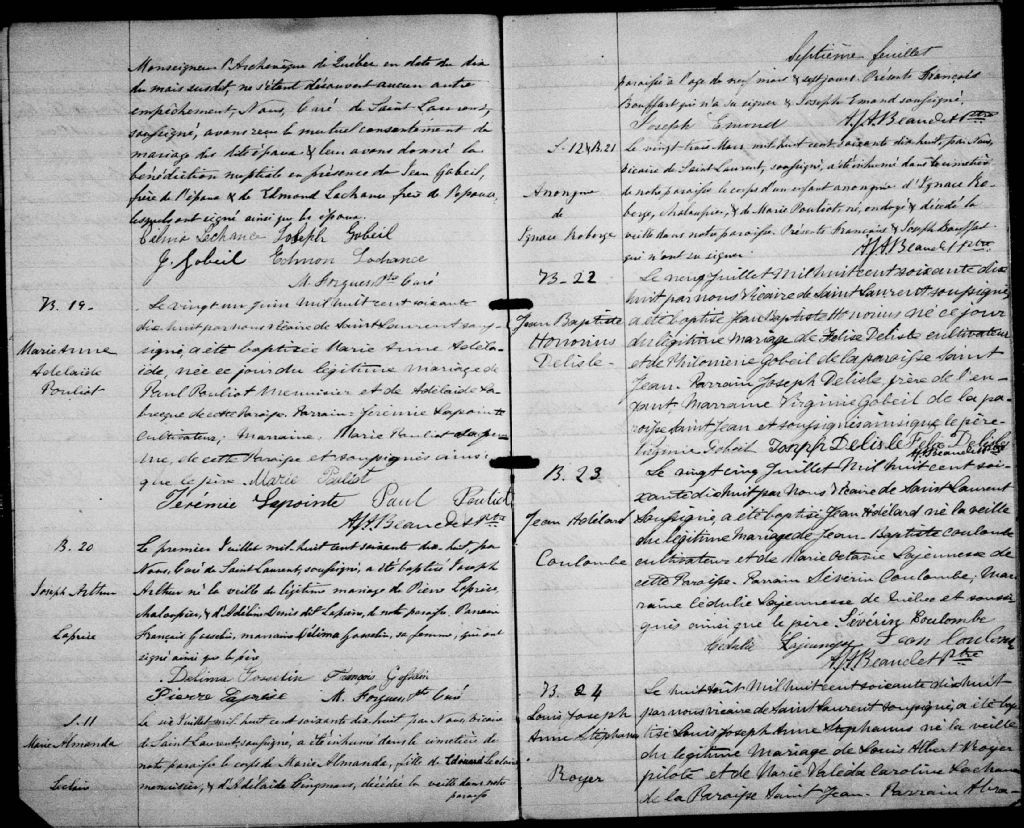 Monseigneur l'Archevêque de Québec en date du dix
du mois susdit, ne s'étant découvert aucun autre
empêchement, Nous, Curé de Saint Laurent,
soussigné, avons reçu le mutuel consentement de
mariage des dits époux & leur avons donné la
bénédiction nuptiale en présence de Jean Gobeil,
père de l'époux & de Edmond Lachance frère de l'épouse,
lesquels ont signé ainsi que les époux.
Célina Lachance Joseph Gobeil
J. Gobeil Edmon Lachance
M. Forgues Ptre Curé
B. 19 -
Marie Anne
Adelaïde
Pouliot
Le vingt un Juin mil huit cent soixante
dix huit par nous vicaire de Saint Laurent sous-
signé, a été baptisée Marie Anne Adelaï-
de, née ce jour du légitime mariage de
Paul Pouliot Menuisier et de Adélaïde La-
brecque de cette Paroisse. Parrain Jérémie Lapointe
Cultivateur; Marraine, Marie Pouliot sa fem-
me, de cette Paroisse et soussignés ainsi
que le père. Marie Pouliot
Jérémie Lapointe Paul Pouliot
A.J.A. Beaudet Ptre
B. 20
Joseph Arthur
Laprise
Le premier Juillet mil huit cent soixante dix-huit, par
Nous, Curé de Saint Laurent, soussigné, a été baptisé Joseph
Arthur né la veille du légitime mariage de Pierre Laprise,
chaloupier, & d'Adéline Denis dit Lapierre, de notre paroisse. Parrain
François Gosselin, marraine Délima Gosselin, sa femme, qui ont
signé ainsi que le père
Delima Gosselin François Goslain
Pierre Laprise M. Forgues Ptre Curé
S. 11
Marie Almanda
Leclerc
Le six Juillet, mil huit cent soixante dix-huit, par Nous, Vicaire
de Saint Laurent, soussigné, a été inhumé dans le cimetière de
notre paroisse le corps de Marie Almanda, fille de Edouard Leclaire
menuisier, & d'Adelaïde Pingman, décédée la veille dans notre
paroisse
Septième feuillet
paroisse à l'age de neuf mois & sept jours. Présents François
Bouffart qui n'a su signer & Joseph Emond soussigné.
Joseph Emond A.J.A. Beaudet Ptre
S. 12 & B. 21
Anonyme
de
Ignace Roberge
Le vingt trois Mars mil huit cent soixante dix huit, par Nous,
Vicaire de Saint Laurent, soussigné, a été inhumé dans le cimetière
de notre paroisse le corps d'un enfant anonyme d'Ignace Ro-
berge, chaloupier, & de Marie Pouliot, né, ondoyé & décédé la
veille dans notre paroisse. Présents François & Joseph Bouffart
qui n'ont su signer. A.J.A. Beaudet Ptre
B - 22
Jean Baptiste
Honorius
Delisle -
Le neuf Juillet Mil huit cent soixante dix
huit par nous Vicaire de Saint Laurent soussigné,
a été baptisé Jean Baptiste Honorius né ce jour
du légitime mariage de Félise Delisle cultivateur
et de Philomène Gobeil de la paroisse Saint
Jean. Parrain Joseph Delisle, frère de l'en-
fant Marraine Virginie Gobeil de la pa-
roisse Saint Jean et soussignés ainsi que le père
Virginie Gobeil Joseph Delisle Felix Delisle
A.J.A. Beaudet Ptre
B. 23
Jean Adélard
Coulombe
Le vingt cinq Juillet Mil huit cent soi-
xante dix huit par Nous Vicaire de Saint Laurent
soussigné, a été baptisé Jean Adélard né la veille
du légitime Mariage de Jean-Baptiste Coulombe
cultivateur et de Marie Octavie Lajeunesse de
cette Paroisse. Parrain Sévérin Coulombe, Mar-
raine Cédulie Lajeunesse de Québec et soussi-
gnés ainsi que le père Sévérin Coulombe
Cédulie Lajeunesse Jean Coulombe
A.J.A. Beaudet Ptre
B. 24
Louis Joseph
Anne Stephanus
Royer
Le huit Août Mil huit cent soixante dix huit
par nous vicaire de Saint Laurent soussigné, a été bap-
tisé Louis Joseph Anne Stephanus né la veille
du légitime Mariage de Louis Albert Royer
pilote et de Marie Valéda Caroline Lachance
de la Paroisse Saint Jean. Parrain Abra-